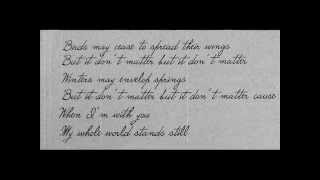 Birds may cease to spread their wings
But it don't matter but it don't matter
Winters may envelop springs
But it don't matter but it don't matter cause
When I'm with you
My whole world stands still